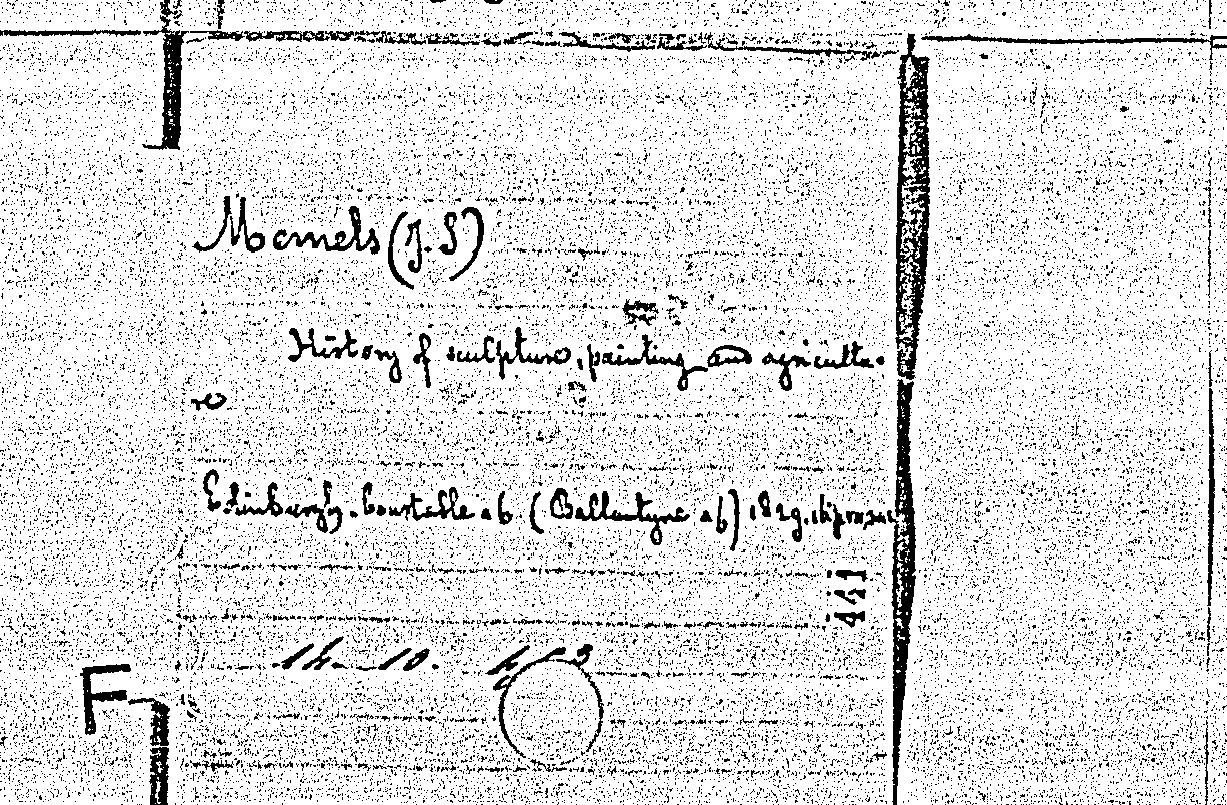 Memels (J. S)
History of sculpture, painting and agricultu-
re
Edinburgh. Constable ab (Ballantyne ab) 1829. 16°
441
14. 10.
F